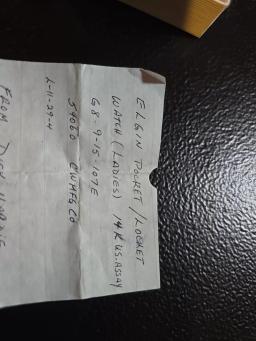 ELGIN POCKET/LOCKET
WATCH (LADIES) 14K U.S. ASSAY
G8-9-15-107E
54060 CWMFGCO
L-11-29-4
FROM DICK